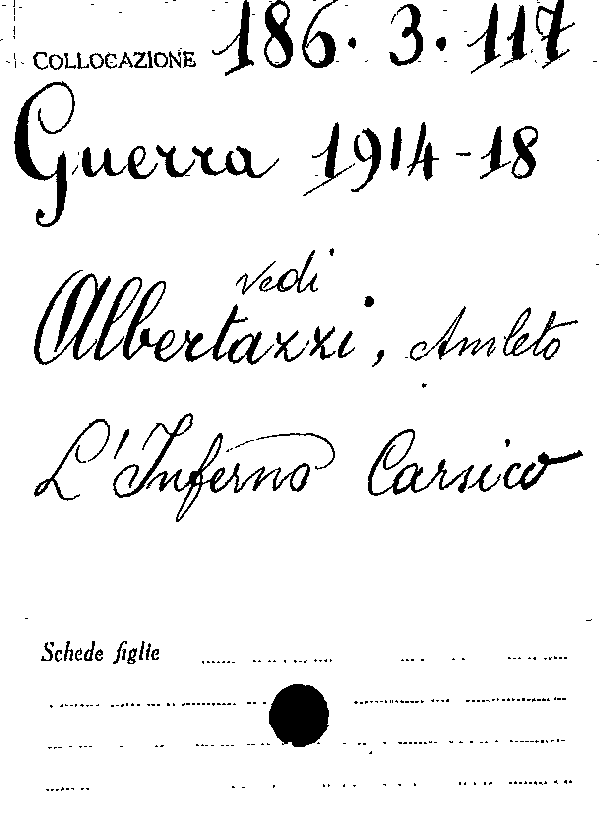 COLLOCAZIONE 186. 3. 117
Guerra 1914-18
vedi
Albertazzi, Amleto
L'Inferno Carsico
Schede figlie